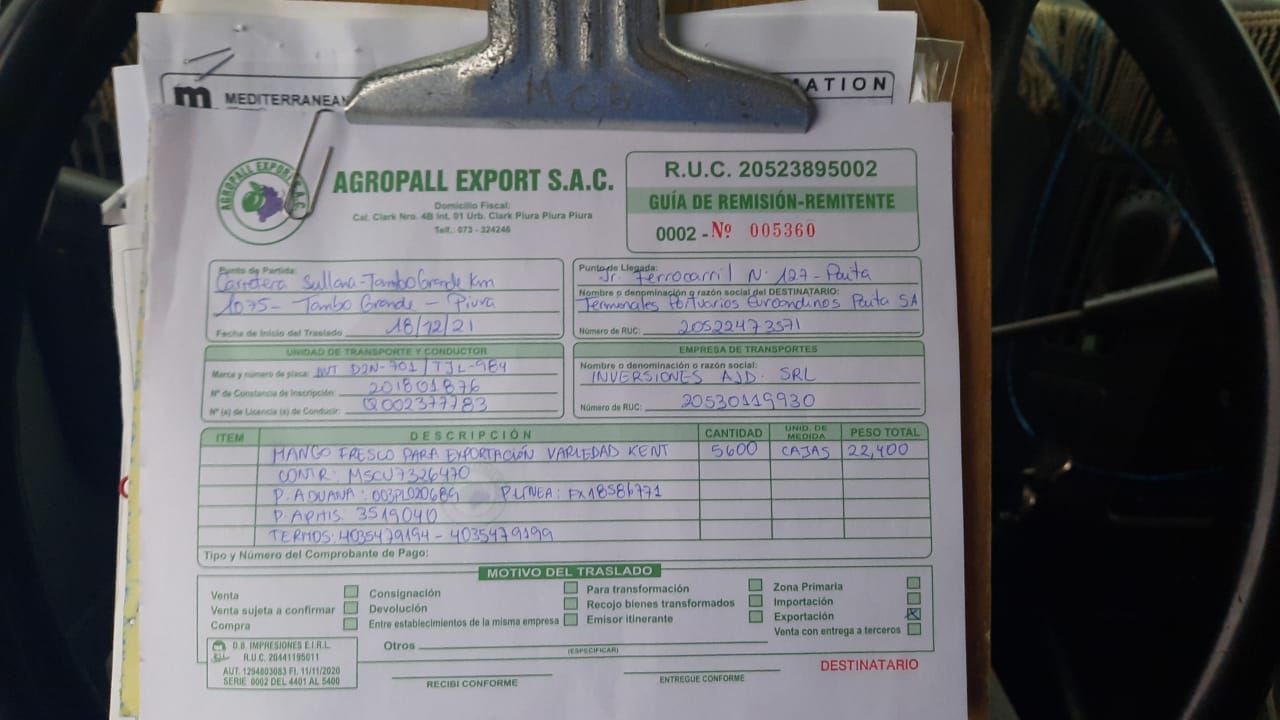 MEDITERRANEAN
MATION
AGROPALL EXPORT S.A.C.
AGROPALL EXPORT S.A.C.
Domicilio Fiscal:
Cal. Clark Nro. 4B Int. 01 Urb. Clark Piura Piura Piura
Telf.: 073 - 324246
R.U.C. 20523895002
GUÍA DE REMISIÓN-REMITENTE
0002 - Nº 005360
Punto de Partida:
Carretera Sullana-TamboGrande Km
1075- Tambo Grande - Piura
Fecha de Inicio del Traslado 18/12/21
Punto de Llegada:
Jr. Ferrocarril N. 127-Paita
Nombre o denominación o razón social del DESTINATARIO:
Terminales Portuarios Euroandinos Paita SA
Número de RUC: 20522473571
UNIDAD DE TRANSPORTE Y CONDUCTOR
Marca y número de placa: INT D2N-701/TJL-984
Nº de Constancia de Inscripción: 201801876
Nº (s) de Licencia (s) de Conducir: Q002377783
EMPRESA DE TRANSPORTES
Nombre o denominación o razón social:
INVERSIONES AJD. SRL
Número de RUC: 20530119930
ITEM DESCRIPCIÓN CANTIDAD UNID. DE MEDIDA PESO TOTAL
MANGO FRESCO PARA EXPORTACIÓN VARIEDAD KENT 5600 CAJAS 22,400
CONTR: MSCU7326470
P. ADUANA: 003PL020689 P. LÍNEA: FX18586771
P. APHIS: 3519040
TERMOS: 4035479194 - 4035479199
Tipo y Número del Comprobante de Pago:
MOTIVO DEL TRASLADO
Venta Consignación Para transformación Zona Primaria
Venta sujeta a confirmar Devolución Recojo bienes transformados Importación
Compra Entre establecimientos de la misma empresa Emisor itinerante Exportación X
Venta con entrega a terceros
Otros
(ESPECIFICAR)
D.B. IMPRESIONES E.I.R.L.
R.U.C. 20441195011
AUT. 1294803083 FI. 11/11/2020
SERIE 0002 DEL 4401 AL 5400
RECIBI CONFORME
ENTREGUE CONFORME
DESTINATARIO